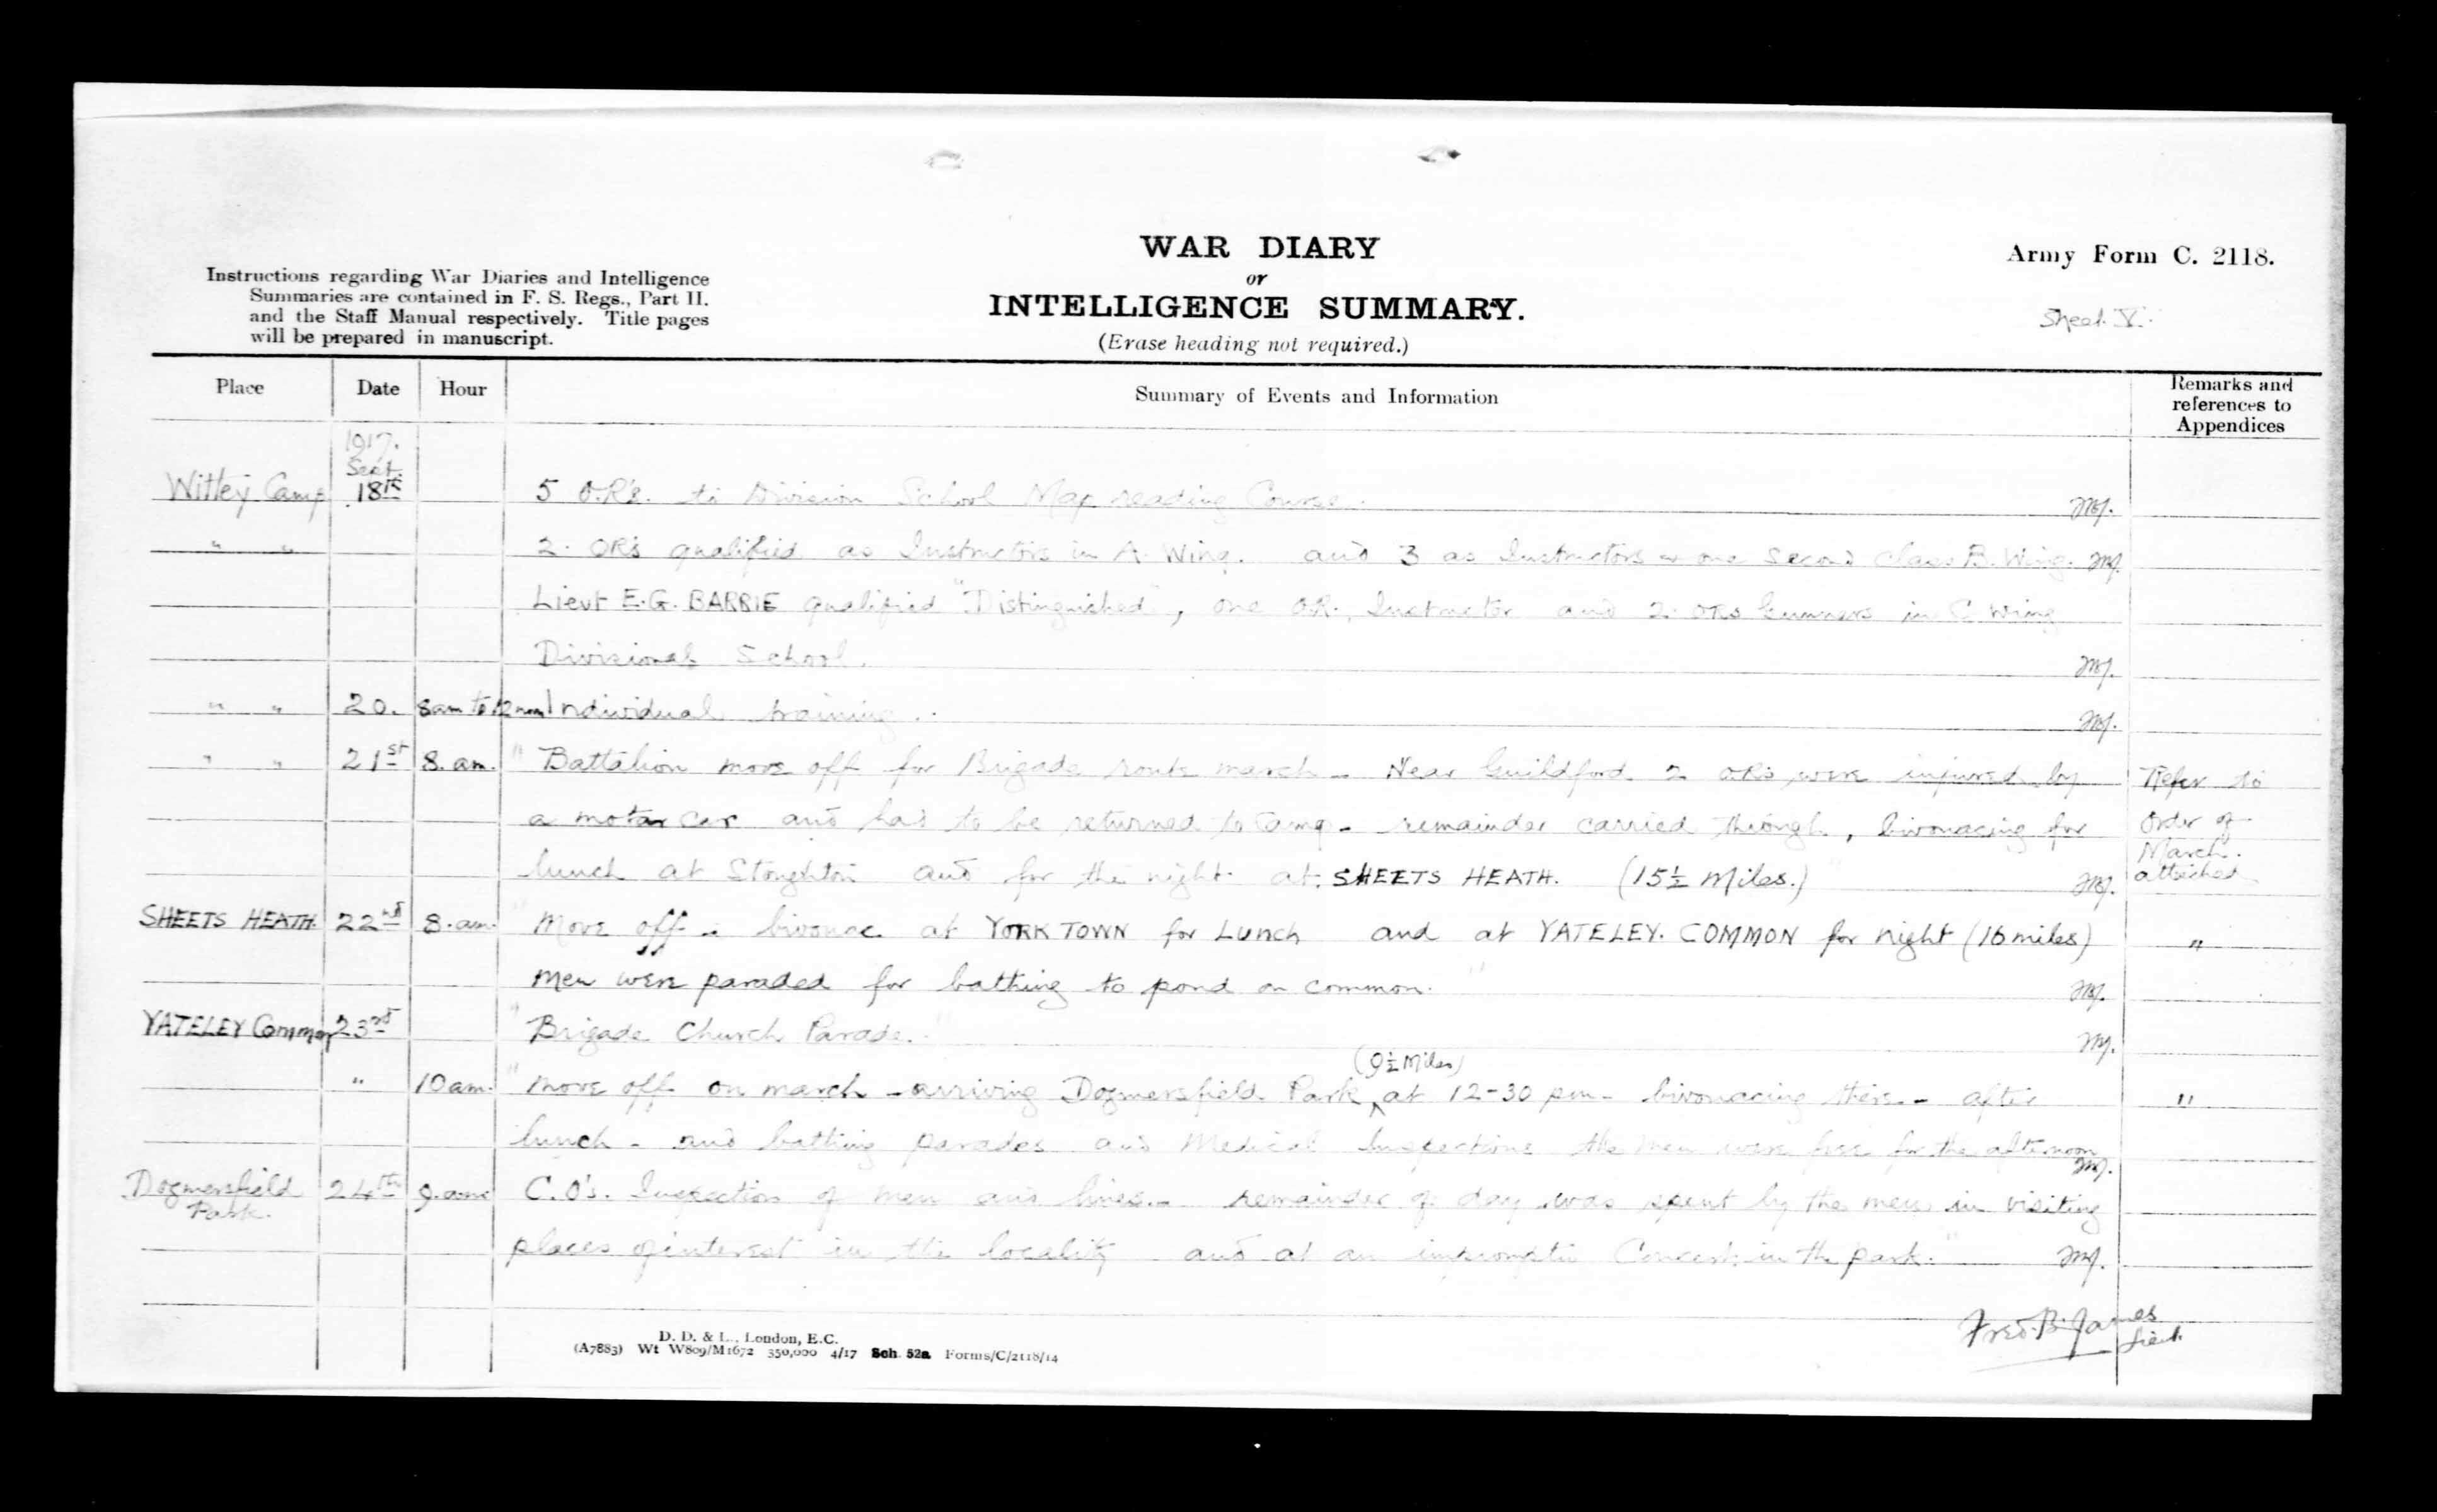 WAR DIARY
or
INTELLIGENCE SUMMARY.
(Erase heading not required.)
Army Form C. 2118.
Sheet V.
Instructions regarding War Diaries and Intelligence
Summaries are contained in F. S. Regs., Part II.
and the Staff Manual respectively. Title pages
will be prepared in manuscript.
Place Date Hour Summary of Events and Information Remarks and references to Appendices
1917.
Sept
Witley Camp 18th 5 O.R's. to Division School Map reading Course.
" " 2. ORs qualified as Instructors in A Wing. and 3 as Instructors & one second class B. Wing.
Lieut E.G. BARRIE qualified "Distinguished", one OR. Instructor and 2. ORs Gunners in C Wing
Divisional School.
" " 20. 8am to 12 noon Individual training.
" " 21st 8. am. "Battalion move off for Brigade route march - Near Guildford 2 ORs were injured by Refer to
a motor car and had to be returned to Camp - remainder carried through, bivouacing for Order of
March.
lunch at Stoughton and for the night at SHEETS HEATH. (15½ Miles.)" attached
SHEETS HEATH. 22nd 8. am. "Move off - bivouac at YORK TOWN for Lunch and at YATELEY. COMMON for night (16 miles) "
Men were paraded for bathing to pond on common."
YATELEY Common 23rd "Brigade Church Parade."
(9½ Miles)
" 10 am. "Move off on march - arriving Dogmersfield Park, at 12-30 pm - bivouacing there - after "
lunch - and bathing parades and Medical Inspections the men were free for the afternoon
Dogmersfield 24th 9. am C.O's. Inspection of men and lines. - remainder of day was spent by the men in visiting
Park.
places of interest in the locality and at an impromptu Concert in the park."
Fred. B. James
Lieut.
D. D. & L., London, E.C.
(A7883) Wt W809/M1672 350,000 4/17 Sch. 52a Forms/C/2118/14